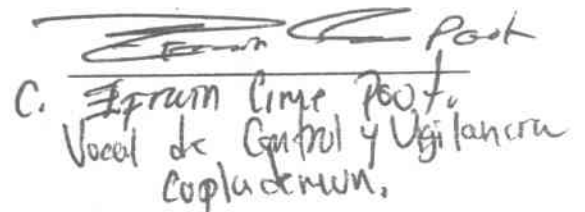 Poot
C. Efrain Cime Poot.
Vocal de Control y Vigilancia
Coplademun.